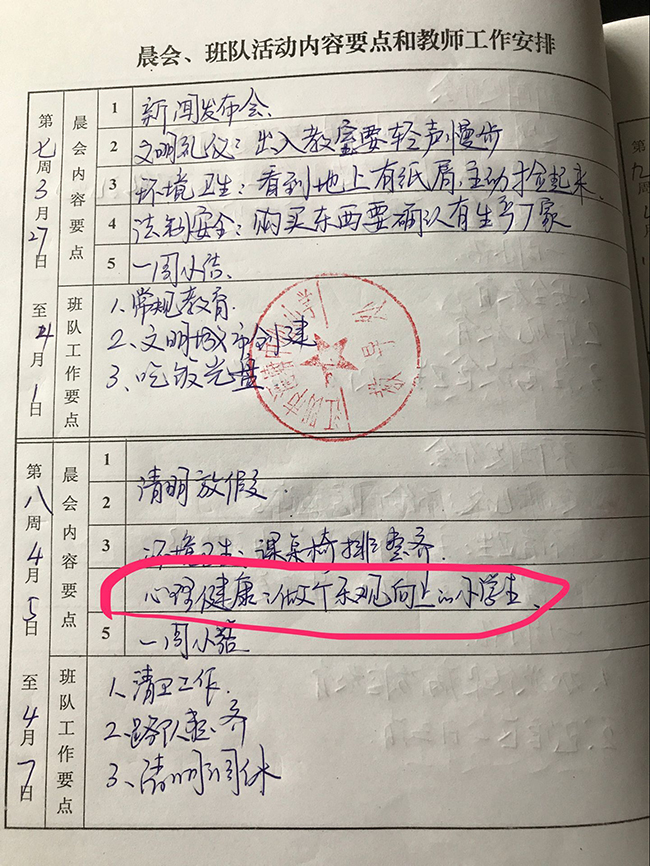 晨会、班队活动内容要点和教师工作安排
第七周3月27日至4月1日
晨会内容要点
1 新闻发布会
2 文明礼仪:出入教室要轻声慢步
3 环境卫生:看到地上有纸屑主动捡起来、
4 法制安全:购买东西要确认有生产厂家
5 一周小结、
班队工作要点
1、常规教育
2、文明城市创建
3、吃饭光盘
教导处
第八周4月5日至4月7日
晨会内容要点
1
2 清明放假
3 环境卫生:课桌椅排整齐.
心理健康:做个乐观向上的小学生、
5 一周小结
班队工作要点
1、清卫工作.
2、路队整齐
3、清明调休